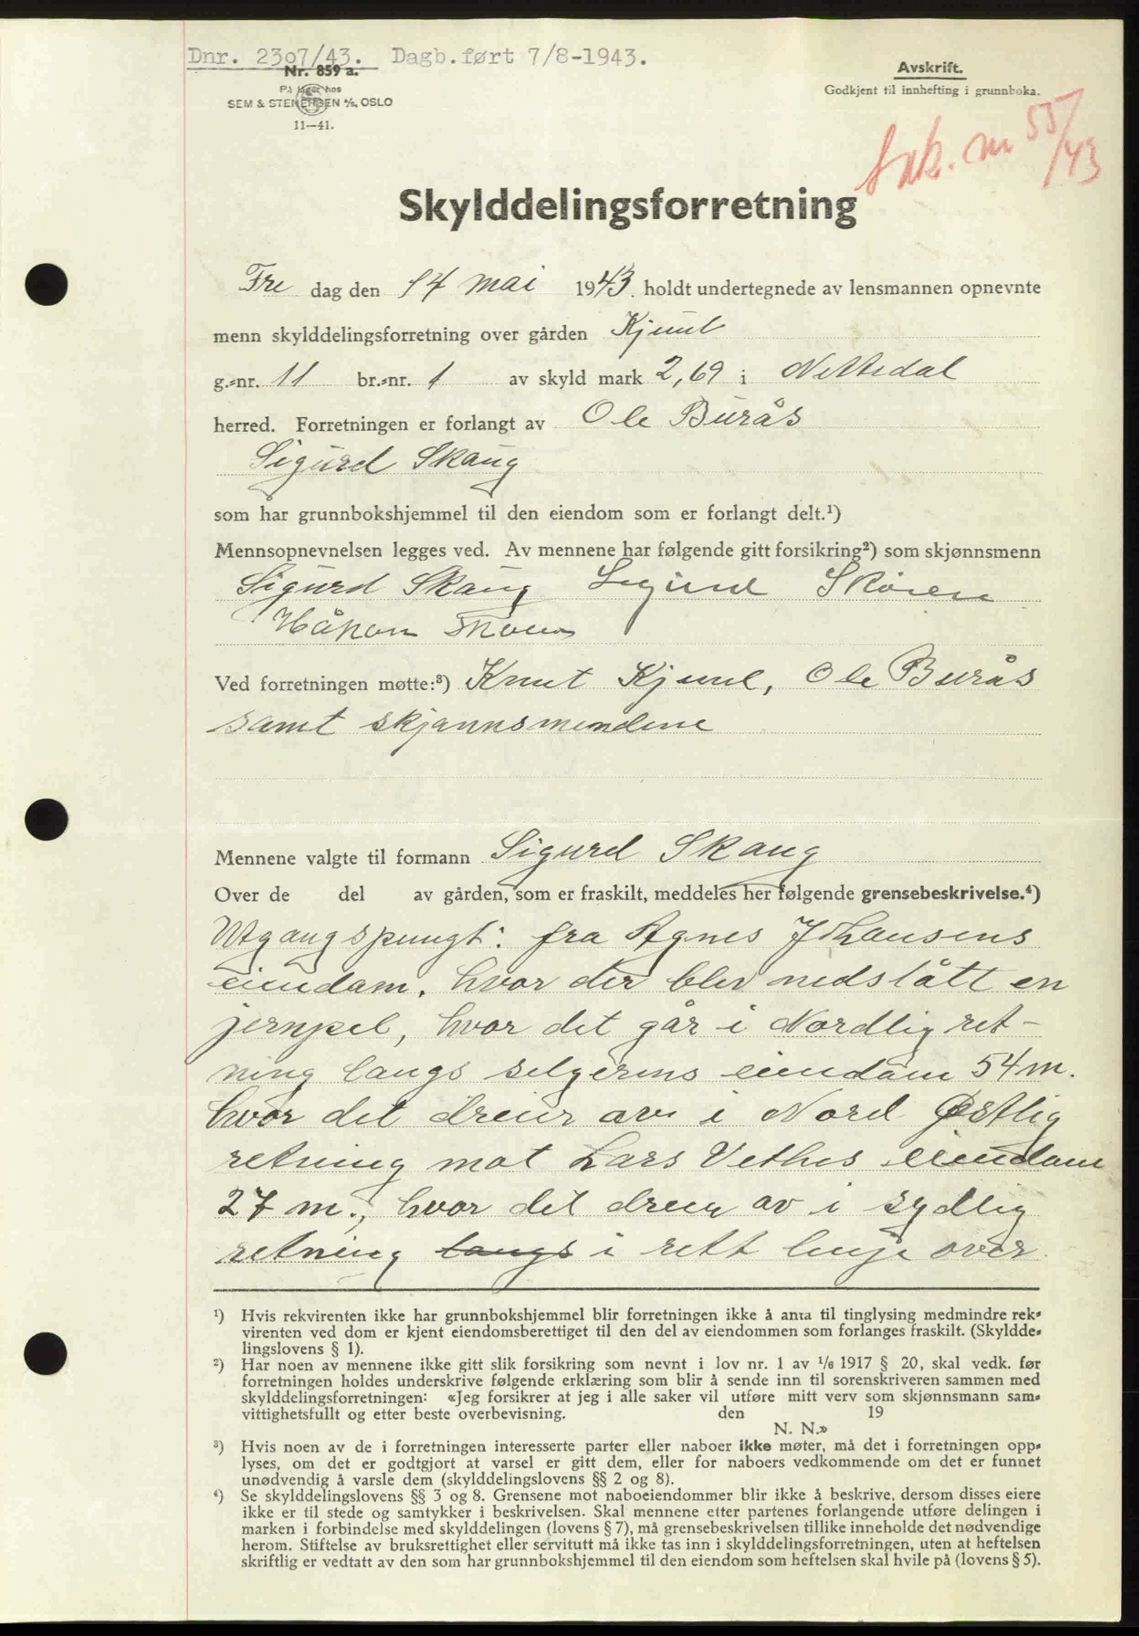 Dnr. 2307/43. Dagb.ført 7/8-1943.
Nr. 859 a.
På lager hos
SEM & STENERSEN A/S, OSLO
11—41.
Avskrift.
Godkjent til innhefting i grunnboka.
55/43
Skylddelingsforretning
Fre dag den 14 mai 1943. holdt undertegnede av lensmannen opnevnte
menn skylddelingsforretning over gården Kjuul
g.-nr. 11 br.-nr. 1 av skyld mark 2,69 i Nittedal
herred. Forretningen er forlangt av Ole Burås
Sigurd Skaug
som har grunnbokshjemmel til den eiendom som er forlangt delt.¹)
Mennsopnevnelsen legges ved. Av mennene har følgende gitt forsikring²) som skjønnsmenn
Sigurd Skaug Sigurd Skøien
Håkon
Ved forretningen møtte:³) Knut Kjuul, Ole Burås
samt skjønnsmendene
Mennene valgte til formann Sigurd Skaug
Over de del av gården, som er fraskilt, meddeles her følgende grensebeskrivelse.⁴)
Utgangspungt: fra Agnes Johansens
eiendam. hvor der blev nedslått en
jernpel, hvor det går i Nordlig ret-
ning langs selgerens eiendam 54 m.
hvor det dreier av i Nord Østlig
retning mot Lars Vethes eiendam
27 m., hvor det dreier av i sydlig
retning langs i rett linje over
¹) Hvis rekvirenten ikke har grunnbokshjemmel blir forretningen ikke å anta til tinglysing medmindre rek-
virenten ved dom er kjent eiendomsberettiget til den del av eiendommen som forlanges fraskilt. (Skyldde-
lingslovens § 1).
²) Har noen av mennene ikke gitt slik forsikring som nevnt i lov nr. 1 av 1/6 1917 § 20, skal vedk. før
forretningen holdes underskrive følgende erklæring som blir å sende inn til sorenskriveren sammen med
skylddelingsforretningen: «Jeg forsikrer at jeg i alle saker vil utføre mitt verv som skjønnsmann sam-
vittighetsfullt og etter beste overbevisning. den 19
N. N.»
³) Hvis noen av de i forretningen interesserte parter eller naboer ikke møter, må det i forretningen opp-
lyses, om det er godtgjort at varsel er gitt dem, eller for naboers vedkommende om det er funnet
unødvendig å varsle dem (skylddelingslovens §§ 2 og 8).
⁴) Se skylddelingslovens §§ 3 og 8. Grensene mot naboeiendommer blir ikke å beskrive, dersom disses eiere
ikke er til stede og samtykker i beskrivelsen. Skal mennene etter partenes forlangende utføre delingen i
marken i forbindelse med skylddelingen (lovens § 7), må grensebeskrivelsen tillike inneholde det nødvendige
herom. Stiftelse av bruksrettighet eller servitutt må ikke tas inn i skylddelingsforretningen, uten at heftelsen
skriftlig er vedtatt av den som har grunnbokshjemmel til den eiendom som heftelsen skal hvile på (lovens § 5).